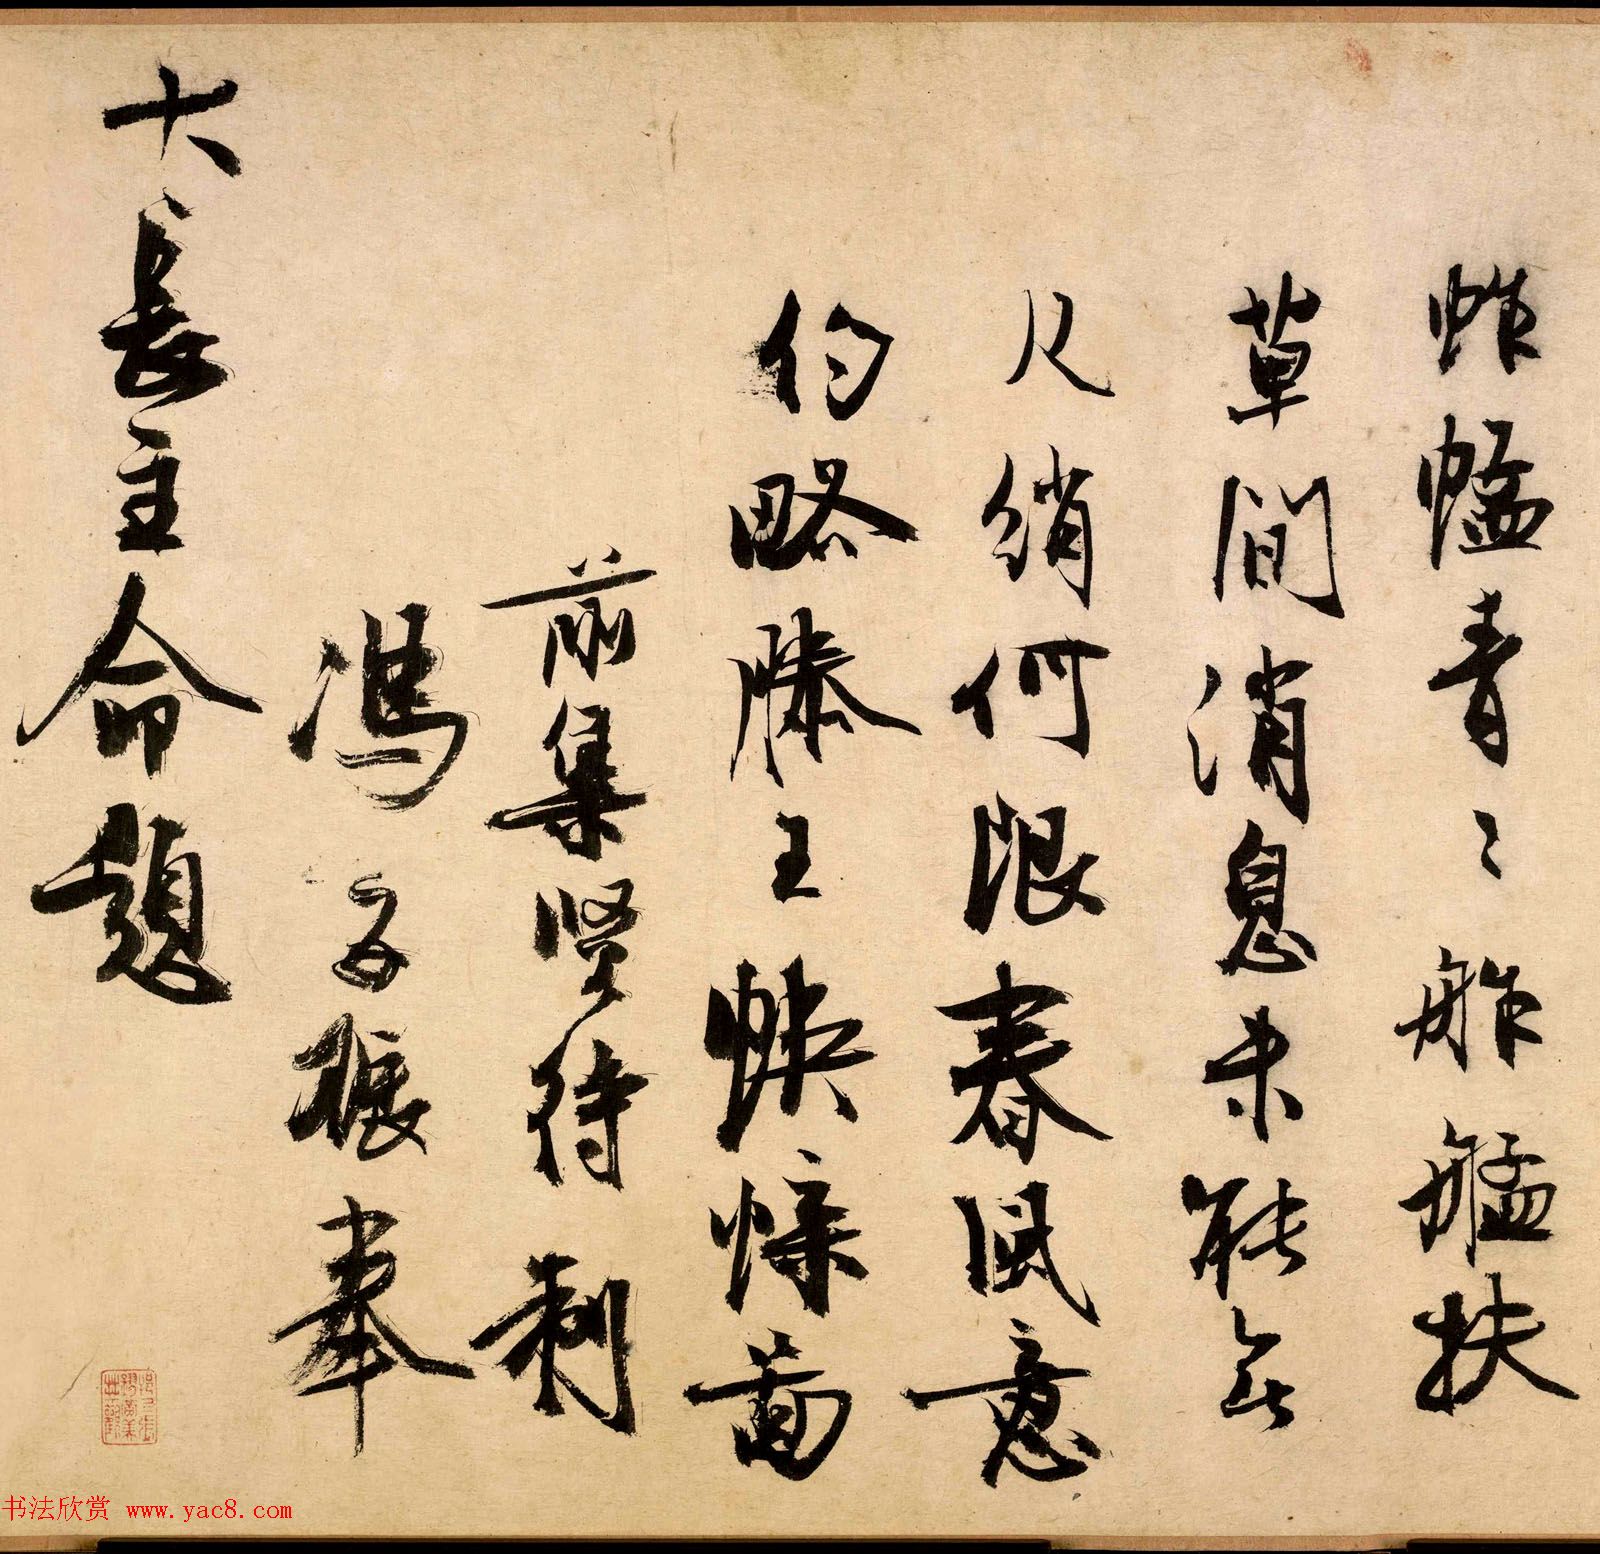 蚱蜢青〻舴艋扶
草間消息未能無
尺綃何限春風意
約略滕王蛺蝶圖
前集賢待制
馮子振奉
大長主命題
书法欣赏 www.yac8.com